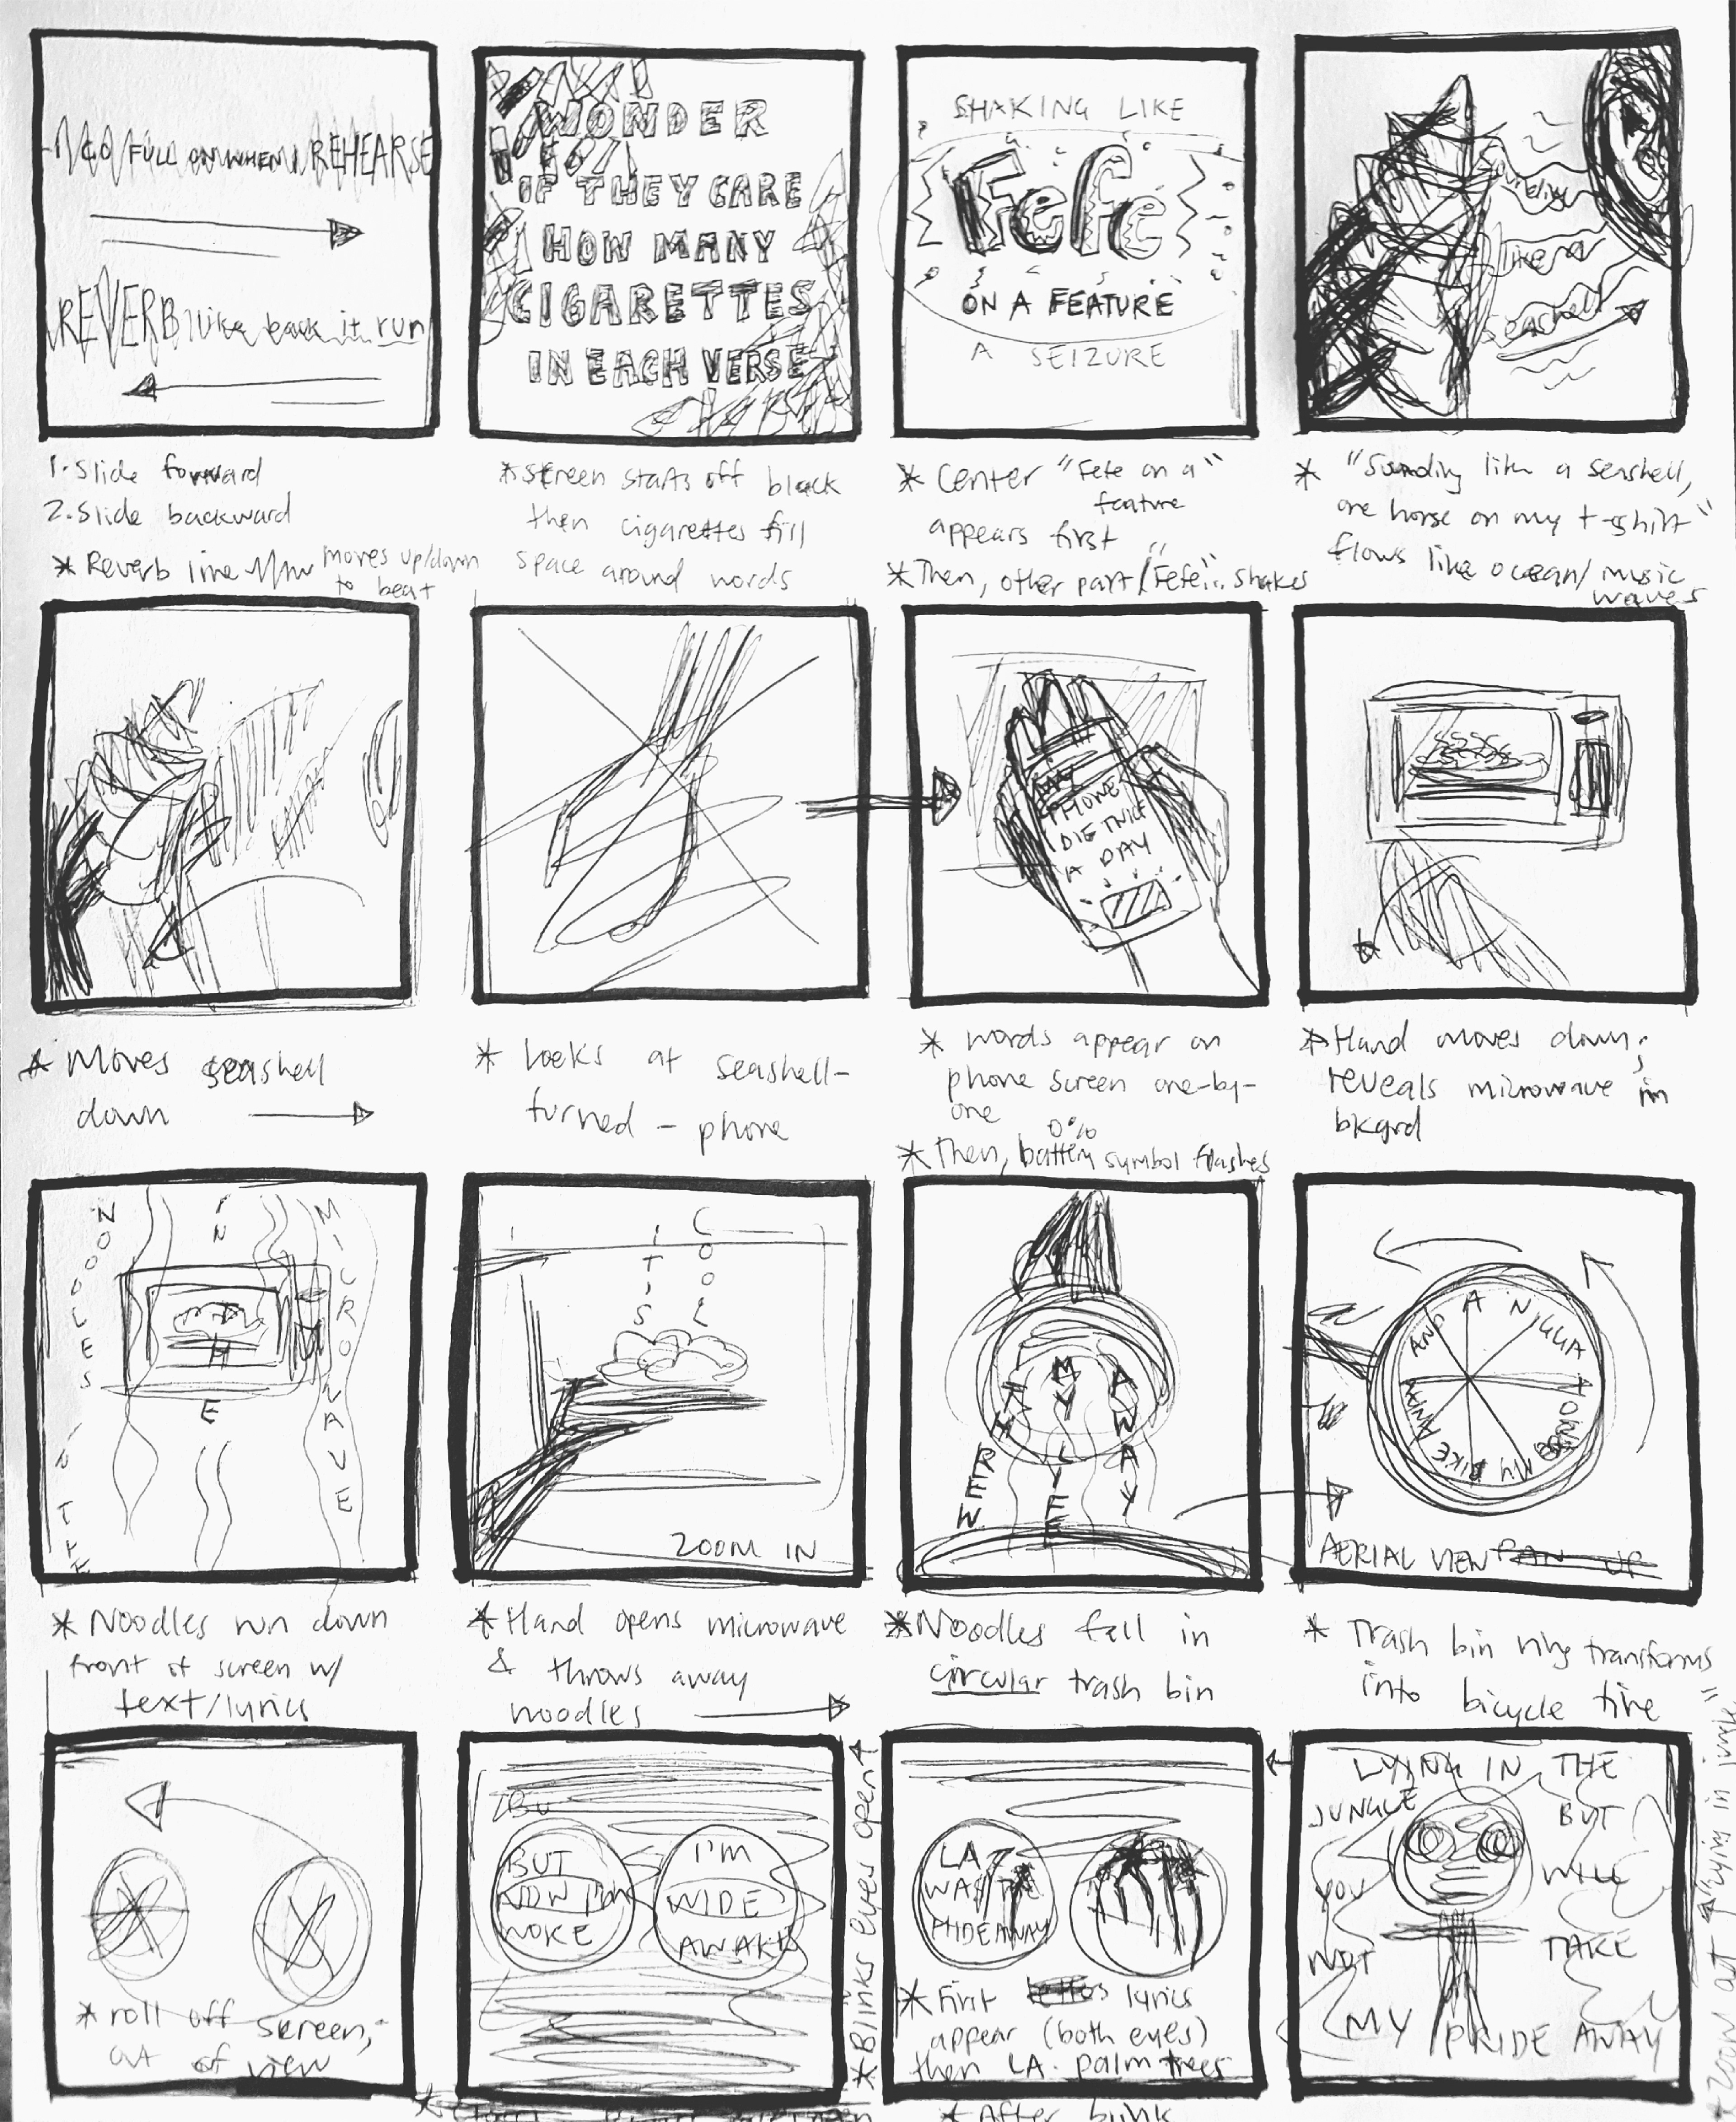 I GO FULL ON WHEN I REHEARSE
REVERB like back it run
1. Slide forward
2. Slide backward
* Reverb line moves up/down
to beat
WONDER
IF THEY CARE
HOW MANY
CIGARETTES
IN EACH VERSE
* screen starts off black
then cigarettes fill
space around words
SHAKING LIKE
Fefe
ON A FEATURE
A SEIZURE
* Center "Fefe on a"
feature
appears first
* Then, other part / "Fefe".. shakes
like a
seashell
* "Sounding like a seashell,
one horse on my t-shirt"
flows like ocean/music
waves
* Moves seashell
down
* Looks at seashell-
turned-phone
MY
PHONE
DIE TWICE
A DAY
* words appear on
phone screen one-by-
one
0%
* Then, battery symbol flashes
* Hand moves down;
reveals microwave in
bkgrd
NOODLES IN THE
IN
THE
MICROWAVE
* Noodles run down
front of screen w/
text/lyrics
IT IS
COOL
ZOOM IN
* Hand opens microwave
& throws away
noodles
THREW
MY LIFE
AWAY
* Noodles fall in
circular trash bin
AND A NIGGA
MY BIKE AWAY
AERIAL VIEW PAN UP
* Trash bin ring transforms
into bicycle tire
* roll off screen,
out of view
BUT
NOW I'M
WOKE
I'M
WIDE
AWAKE
* Blinks eyes open
LA
WAS THE
HIDEAWAY
* First lyrics
appear (both eyes)
then LA palm trees
* After blink
LYING IN THE
JUNGLE
BUT
YOU
WILL
NOT
TAKE
MY PRIDE AWAY
* Zoom out "lying in jungle"